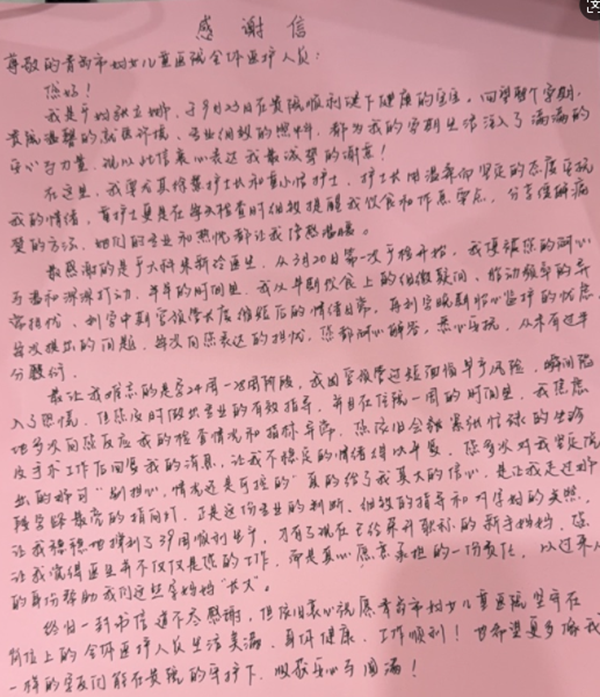 感谢信
尊敬的青岛市妇女儿童医院全体医护人员：
您好！
我是孕妇，于9月23日在贵院顺利诞下健康的宝宝。回望整个孕期，
贵院温馨的就医环境、专业细致的照料，都为我的孕期生活注入了满满的
安心与力量，现以此信衷心表达我最诚挚的谢意！
在这里，我要尤其护士长和黄护士，护士长用温柔而坚定的态度安抚
我的情绪，黄护士更是在每天检查时细致提醒我饮食和作息要点，分享缓解
的方法，她们的专业和热忱都让我倍感温暖。
最感谢的是产科医生，从3月20日第一次产检开始，我便被您的耐心
与温和深深打动。半年的时间里，我从早期饮食上的细微疑问、胎动频率的异
常担忧、到孕中期宫颈管长度缩短后的情绪，再到孕晚期胎心监护的忧虑，
每次提出的问题，每次向您表达的担忧，您都耐心解答，悉心安抚，从未有过半
分敷衍。
最让我难忘的是孕24周-28周阶段，我因宫颈管过短面临早产风险，瞬间陷
入了恐慌，但您及时做出专业的有效指导，并且在住院一周的时间里，我焦虑
地多次向您反应我的检查情况和指标异常，您依旧会在紧张忙碌的
及手术工作后回复我的消息，让我不稳定的情绪得以平复。您多次对我坚定说
出的那句“别担心，情况还是可控的”真的给了我莫大的信心，是让我走过那
段最亮的指向灯。正是这份专业的判断、细致的指导和对孕妇的关照，
让我稳稳地撑到了39周顺利生产，才有了现在已经荣升职称的新手妈妈，您
让我觉得医生并不仅仅是您的工作，而是真心愿意承担的一份责任，以过来人
的身份帮助我们这些孕妈妈“长大”。
终归一封书信道不尽感谢，但依旧衷心祝愿青岛市妇女儿童医院坚守在
岗位上的全体医护人员生活美满，身体健康，工作顺利！也希望更多像我
一样的宝妈们能在贵院的守护下，收获安心与圆满！